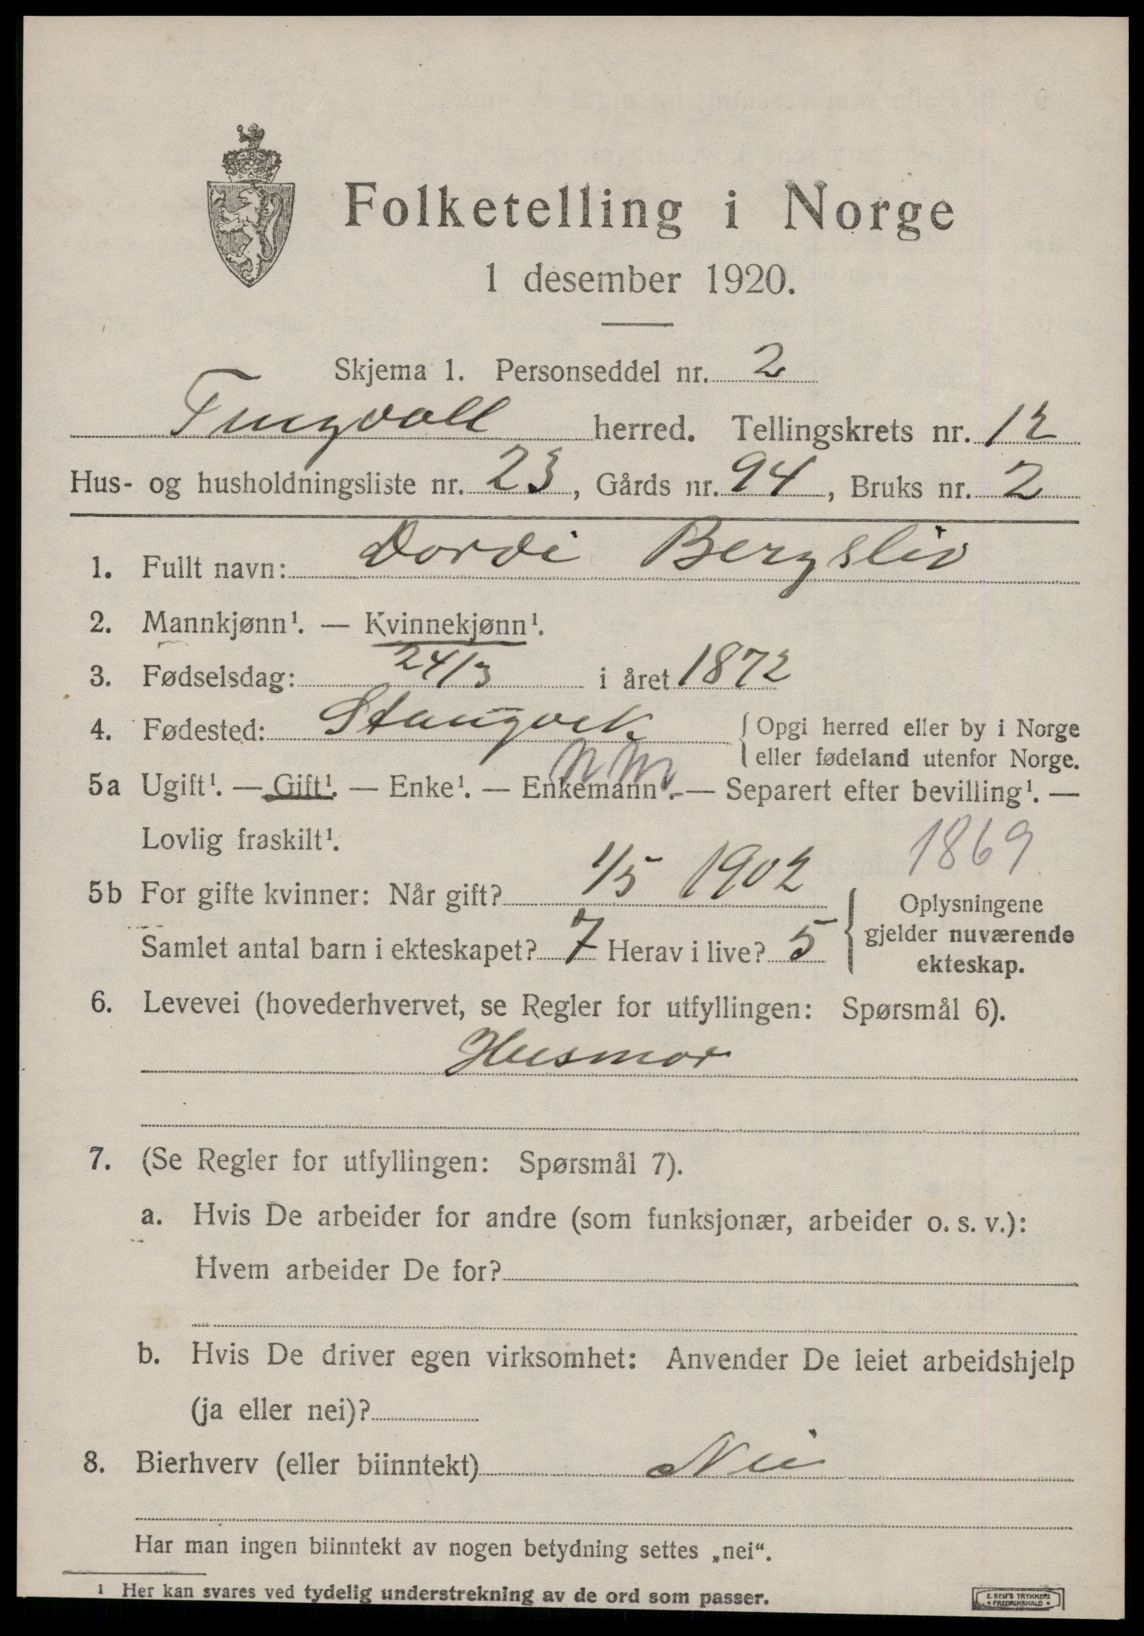 Folketelling i Norge
1 desember 1920.
Skjema 1. Personseddel nr. 2
Tingvoll herred. Tellingskrets nr. 12
Hus- og husholdningsliste nr. 23, Gårds nr. 94, Bruks nr. 2
1. Fullt navn: Dordi Bergsliv
2. Mannkjønn¹. — Kvinnekjønn¹.
3. Fødselsdag: 24/3 i året 1872
4. Fødested: Stangvik { Opgi herred eller by i Norge
eller fødeland utenfor Norge.
5a Ugift¹. — Gift¹. — Enke¹. — Enkemann¹. — Separert efter bevilling¹. —
Lovlig fraskilt¹.
1869
5b For gifte kvinner: Når gift? 1/5 1902
Samlet antal barn i ekteskapet? 7 Herav i live? 5
Oplysningene
gjelder nuværende
ekteskap.
6. Levevei (hovederhvervet, se Regler for utfyllingen: Spørsmål 6).
Husmor
7. (Se Regler for utfyllingen: Spørsmål 7).
a. Hvis De arbeider for andre (som funksjonær, arbeider o. s. v.):
Hvem arbeider De for?
b. Hvis De driver egen virksomhet: Anvender De leiet arbeidshjelp
(ja eller nei)?
8. Bierhverv (eller biinntekt) Nei
Har man ingen biinntekt av nogen betydning settes „nei“.
¹ Her kan svares ved tydelig understrekning av de ord som passer.
E. SEM'S TRYKKERI
FREDRIKSHALD